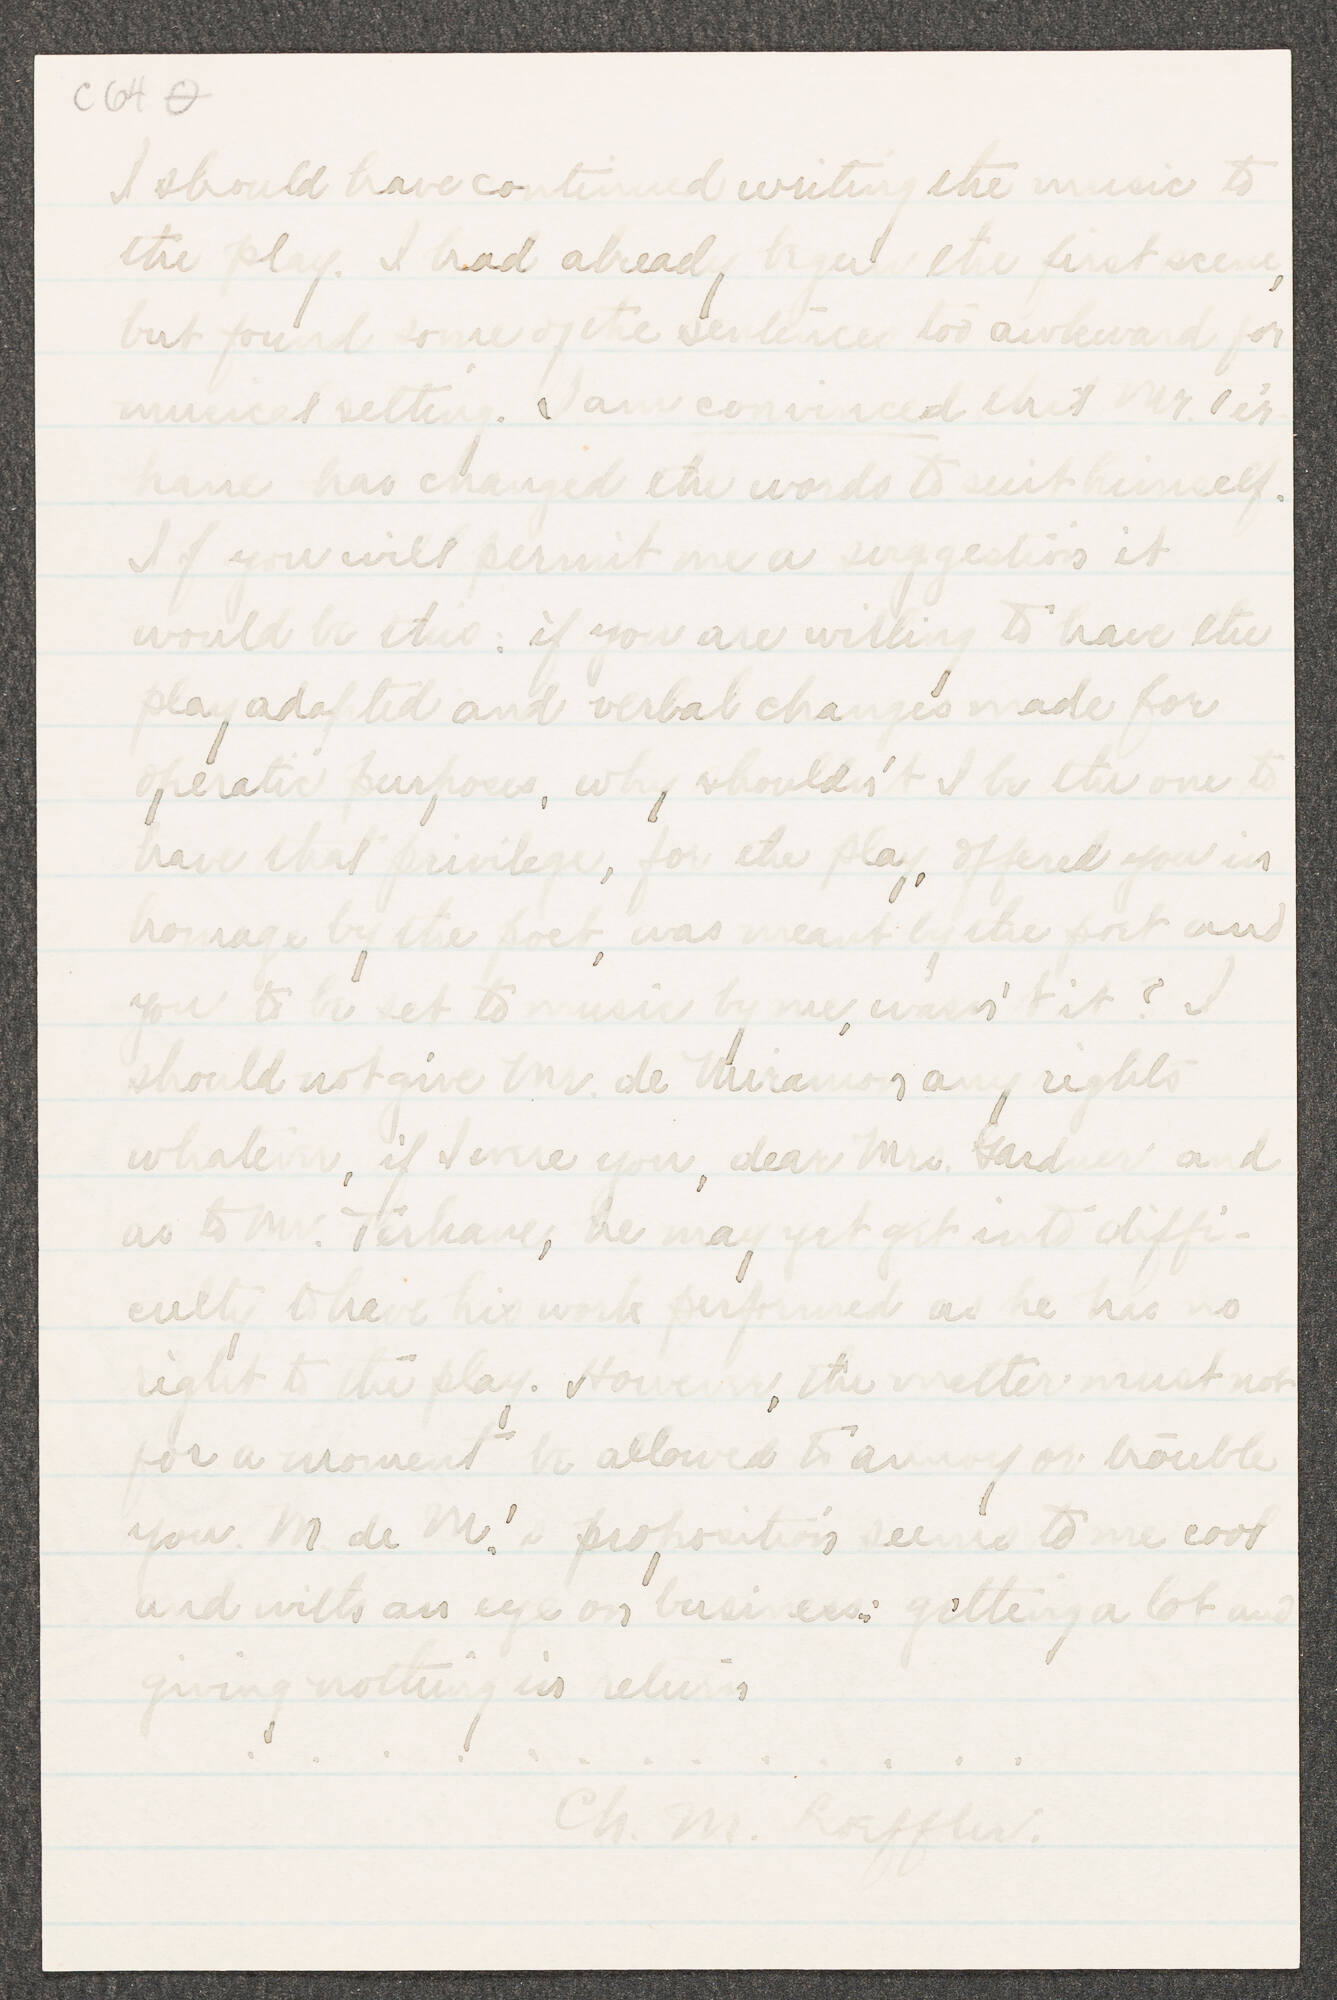 C 64
I should have continued writing the music to
the play. I had already begun the first scene,
but found some of the sentences too awkward for
musical setting. I am convinced that Mr. Ter-
hane has changed the words to suit himself.
If you will permit me a suggestion it
would be this: if you are willing to have the
play adapted and verbal changes made for
operatic purposes, why shouldn't I be the one to
have that privilege, for the play, offered you in
homage by the poet, was meant by the poet and
you to be set to music by me, wasn't it? I
should not give Mr. de Miramon any rights
whatever, if I were you, dear Mrs. Gardner and
as to Mr. Terhane, he may yet get into diffi-
culty to have his work performed as he has no
right to the play. However, the matter must not
for a moment be allowed to annoy or trouble
you. M. de M.'s proposition seems to me cool
and with an eye on business: getting a lot and
giving nothing in return
. . . . . . . . . . . . .
Ch. M. Loeffler.